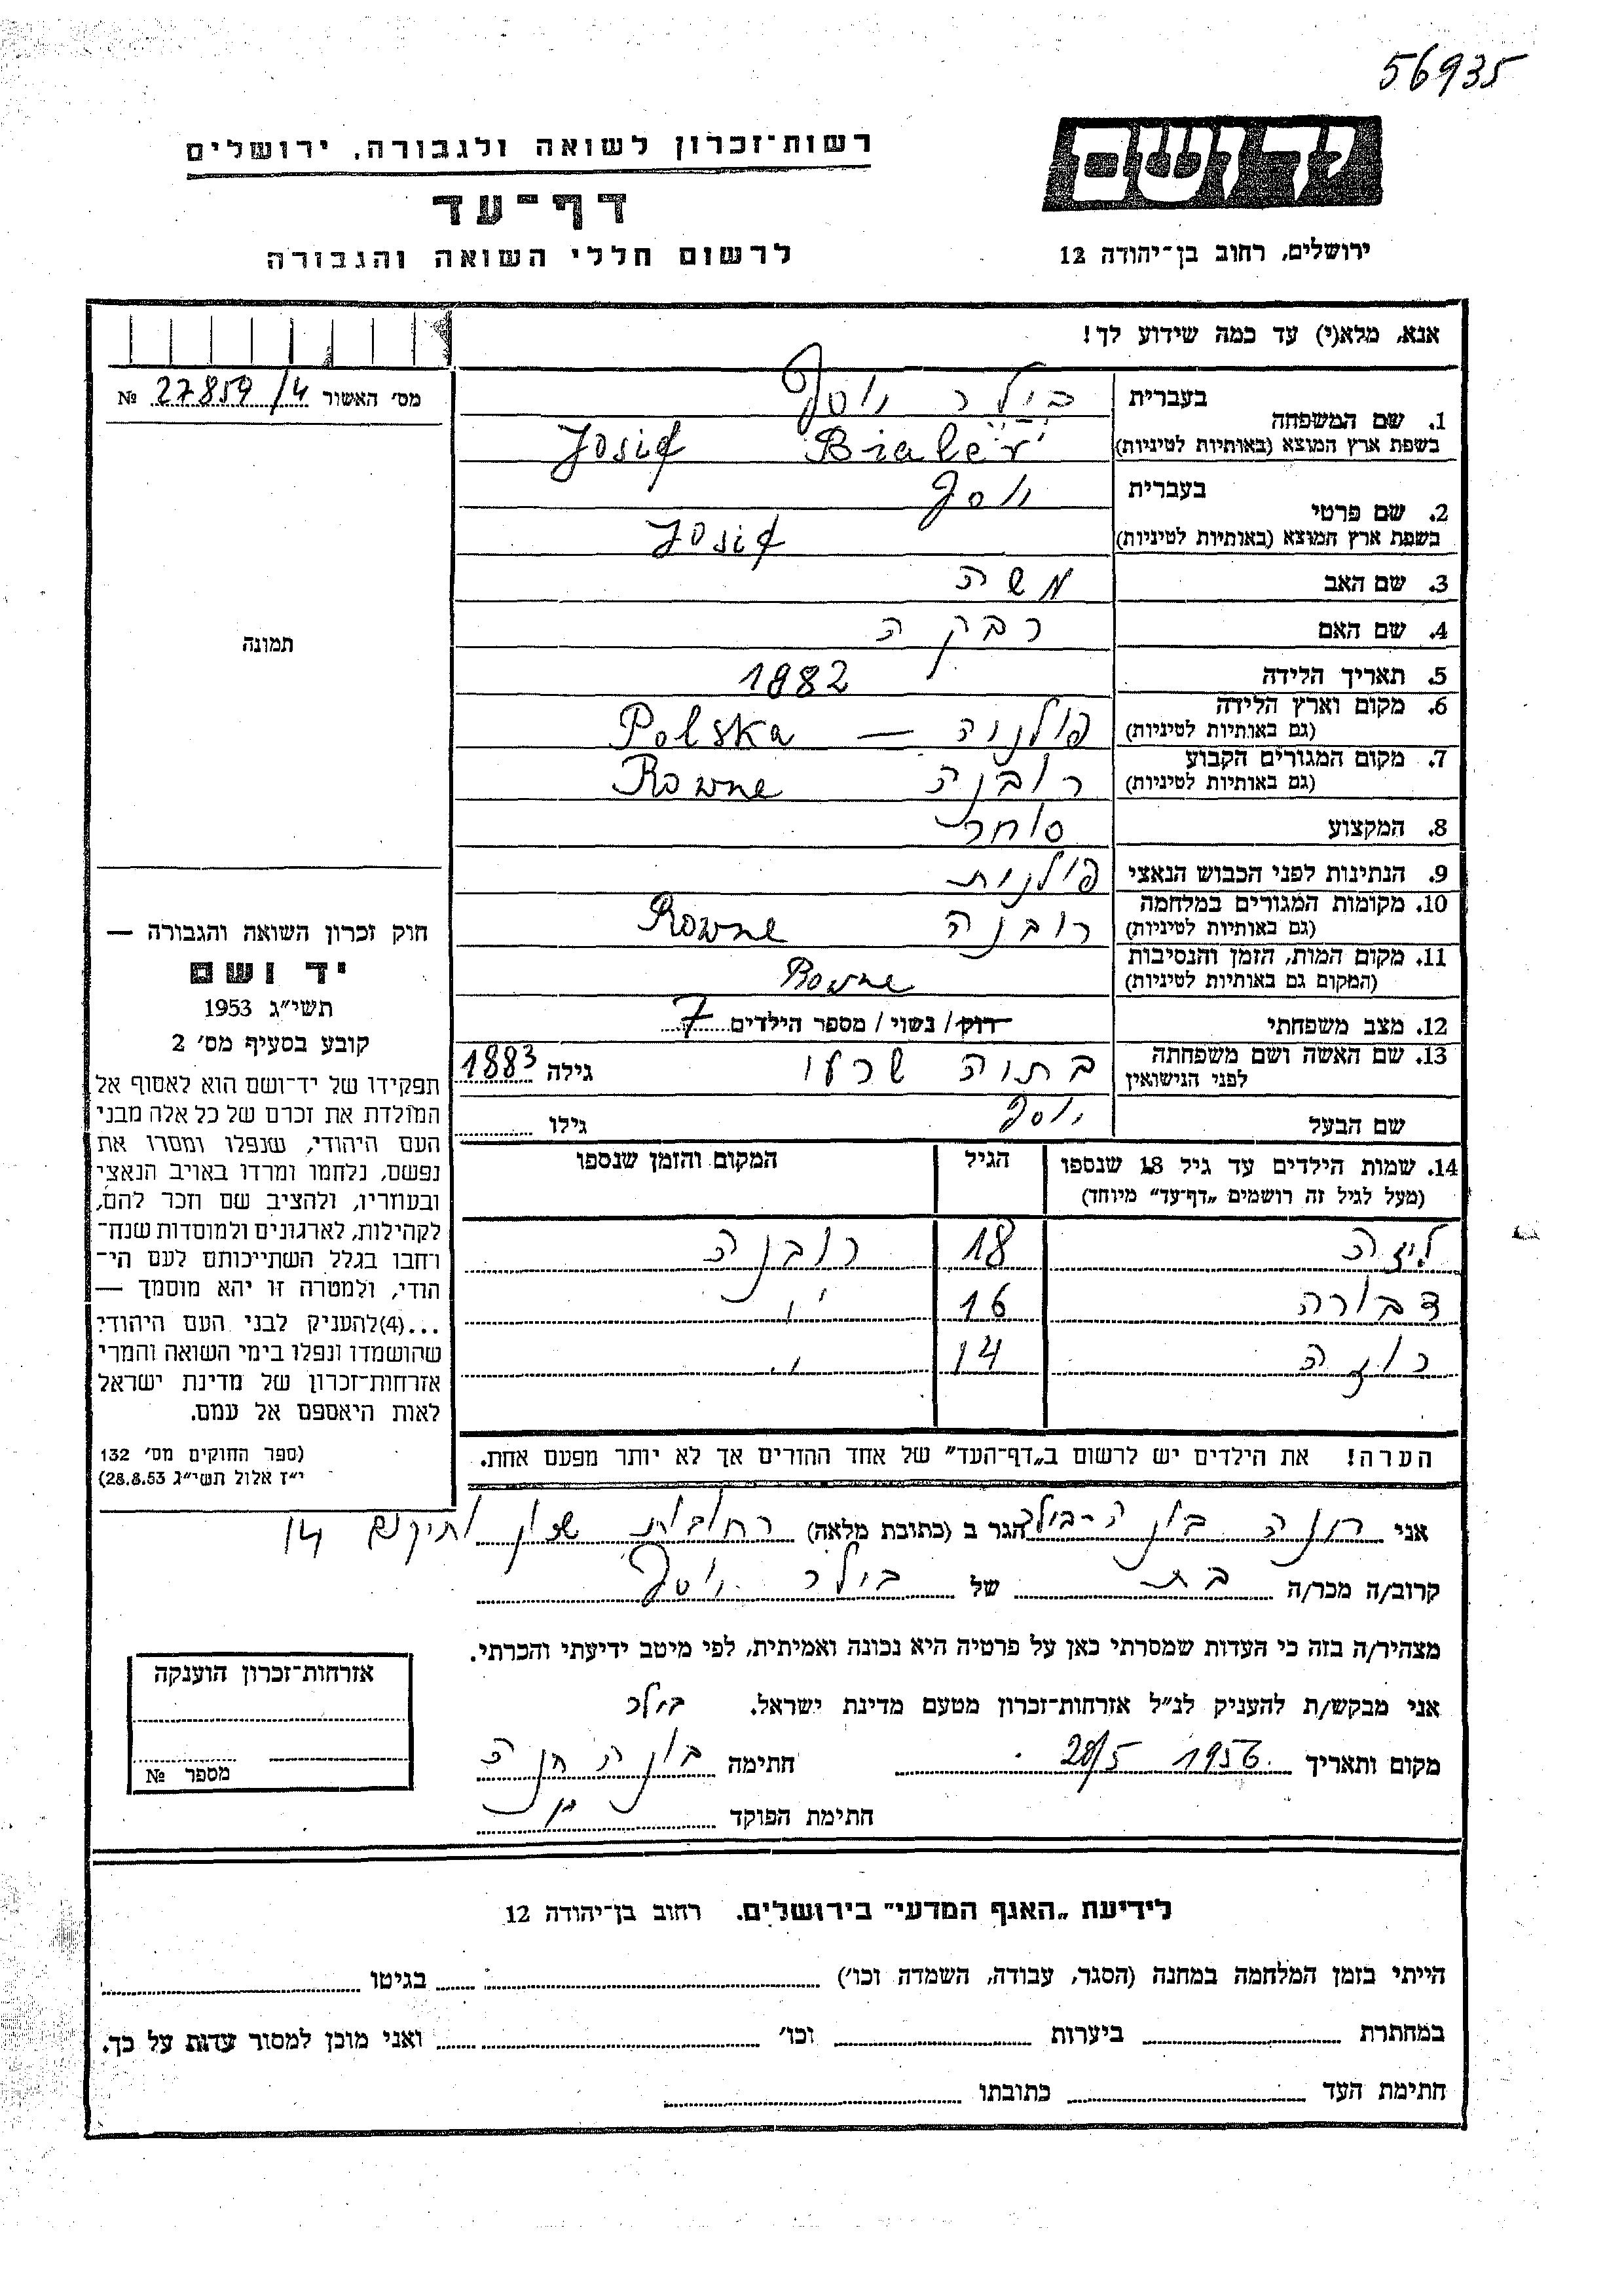 56935
ידושם
ירושלים, רחוב בן־יהודה 12
רשות־זכרון לשואה ולגבורה, ירושלים
דף־עד
לרשום חללי השואה והגבורה
אנא, מלא(י) עד כמה שידוע לך!
מס׳ האשור 27859/4 №
תמונה
1. שם המשפחה
בעברית בילר יוסף
בשפת ארץ המוצא (באותיות לטיניות) Josif Bialer
2. שם פרטי
בעברית יוסף
בשפת ארץ המוצא (באותיות לטיניות) Josif
3. שם האב משה
4. שם האם רבקה
5. תאריך הלידה 1882
6. מקום וארץ הלידה
(גם באותיות לטיניות) פולניה — Polska
7. מקום המגורים הקבוע
(גם באותיות לטיניות) רובנה Rowne
8. המקצוע סוחר
9. הנתינות לפני הכבוש הנאצי פולנית
10. מקומות המגורים במלחמה
(גם באותיות לטיניות) רובנה Rowne
11. מקום המות, הזמן והנסיבות
(המקום גם באותיות לטיניות) Rowne
12. מצב משפחתי רוק / נשוי / מספר הילדים 7
13. שם האשה ושם משפחתה
לפני הנישואין בתיה גילה 1883
שם הבעל יוסף גילו
14. שמות הילדים עד גיל 18 שנספו הגיל המקום והזמן שנספו
(מעל לגיל זה רושמים „דף־עד" מיוחד)
ליזה 18 רובנה
דבורה 16 "
רוזה 14 "
הערה! את הילדים יש לרשום ב„דף־העד" של אחד ההורים אך לא יותר מפעם אחת.
חוק זכרון השואה והגבורה —
יד ושם
תשי״ג 1953
קובע בסעיף מס׳ 2
תפקידו של יד־ושם הוא לאסוף אל
המולדת את זכרם של כל אלה מבני
העם היהודי, שנפלו ומסרו את
נפשם, נלחמו ומרדו באויב הנאצי
ובעוזריו, ולהציב שם וזכר להם,
לקהילות, לארגונים ולמוסדות שנח־
רחבו בגלל השתייכותם לעם הי־
הודי, ולמטרה זו יהא מוסמך —
...(4)להעניק לבני העם היהודי
שהושמדו ונפלו בימי השואה והמרי
אזרחות־זכרון של מדינת ישראל
לאות היאספם אל עמם.
(ספר החוקים מס׳ 132
י״ז אלול תשי״ג 28.8.53)
אני חנה בונה-בילר הגר ב (כתובת מלאה) רחובות שכון ותיקים 14
קרוב/ה מכר/ה בת של בילר יוסף
מצהיר/ה בזה כי העדות שמסרתי כאן על פרטיה היא נכונה ואמיתית, לפי מיטב ידיעתי והכרתי.
אני מבקש/ת להעניק לנ״ל אזרחות־זכרון מטעם מדינת ישראל.
בילר
מקום ותאריך 28/5 1956 חתימה בונה חנה
חתימת הפוקד
אזרחות־זכרון הוענקה
מספר №
לידיעת „האגף המדעי" בירושלים. רחוב בן־יהודה 12
הייתי בזמן המלחמה במחנה (הסגר, עבודה, השמדה וכו׳) בגיטו
במחתרת ביערות וכו׳ ואני מוכן למסור עדות על כך.
חתימת העד כתובתו